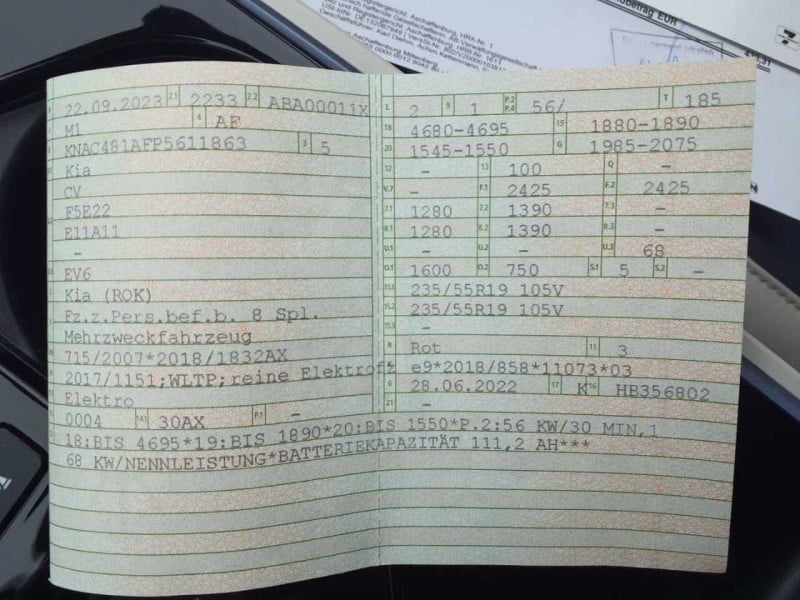 obetrag EUR
22.09.2023 2.1 2233 2.2 ABA00011X
M1 4 AF
KNAC481AFP5611863 3 5
Kia
CV
F5E22
E11A11
-
EV6
Kia (ROK)
Fz.z.Pers.bef.b. 8 Spl.
Mehrzweckfahrzeug
715/2007*2018/1832AX
2017/1151;WLTP;reine Elektrofz
Elektro
0004 14.1 30AX P.1 -
L 2 9 1 P.2 P.4 56/ T 185
18 4680-4695 19 1880-1890
20 1545-1550 G 1985-2075
12 - 13 100 Q -
V.7 - F.1 2425 F.2 2425
7.1 1280 7.2 1390 7.3 -
8.1 1280 8.2 1390 8.3 -
U.1 - U.2 - U.3 68
O.1 1600 O.2 750 S.1 5 S.2 -
15.1 235/55R19 105V
15.2 235/55R19 105V
15.3 -
R Rot 11 3
K e9*2018/858*11073*03
6 28.06.2022 17 K 16 HB356802
21 -
18:BIS 4695*19:BIS 1890*20:BIS 1550*P.2:56 KW/30 MIN,1
68 KW/NENNLEISTUNG*BATTERIEKAPAZITÄT 111,2 AH***